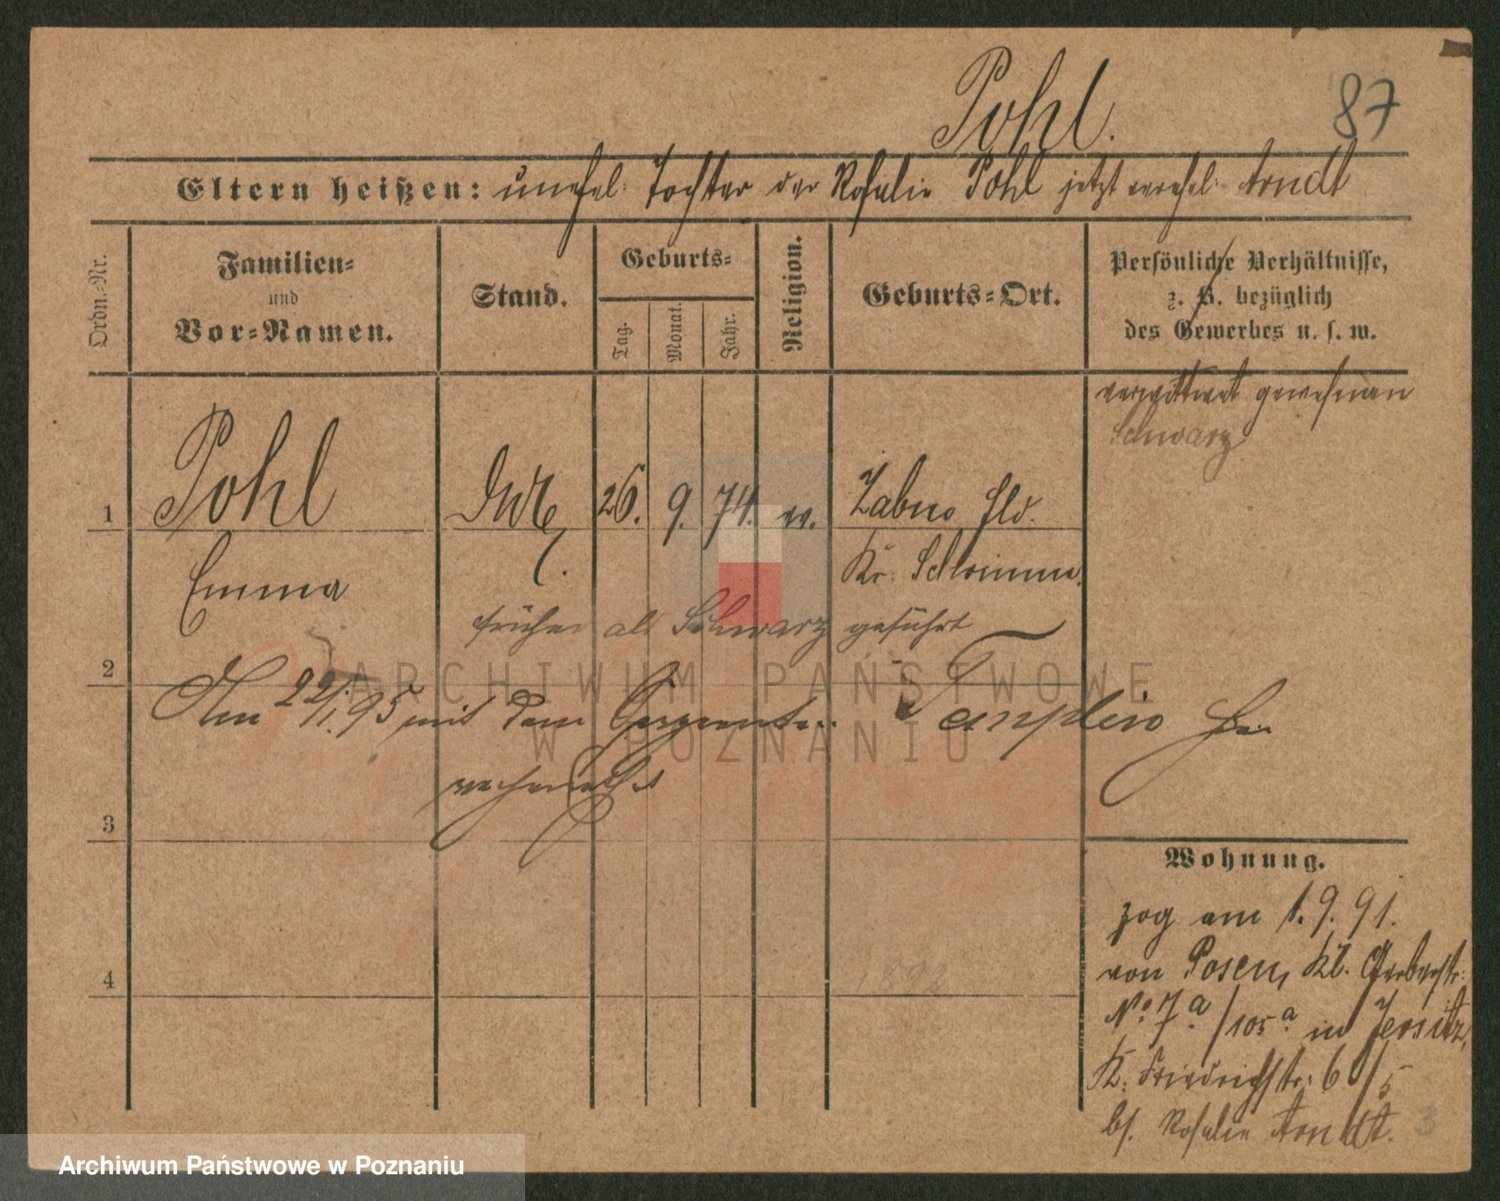 Pohl.
87
Eltern heißen: unehel. Tochter der Rosalie Pohl jetzt verehel. Arndt
Ordn.-Nr.
Familien-
und
Vor-Namen.
Stand.
Geburts-
Tag.
Monat.
Jahr.
Religion.
Geburts-Ort.
Persönliche Verhältnisse,
z. B. bezüglich
des Gewerbes u. s. w.
verwittwet gewesenen
Schwarz
1
Pohl
26.
9.
74.
Zabno
Kr. Schrimm.
Emma
früher als Schwarz geführt
2
Am 22/1.95 mit dem Templin
verheirathet
3
Wohnung.
zog am 1.9.91.
von Posen, Kl. Gerberstr.
No 7a/105a in Jersitz,
K. Friedrichstr. 6/5
bs. Rosalie Arndt.
4
1892
3
ARCHIWUM PAŃSTWOWE
W POZNANIU
Archiwum Państwowe w Poznaniu